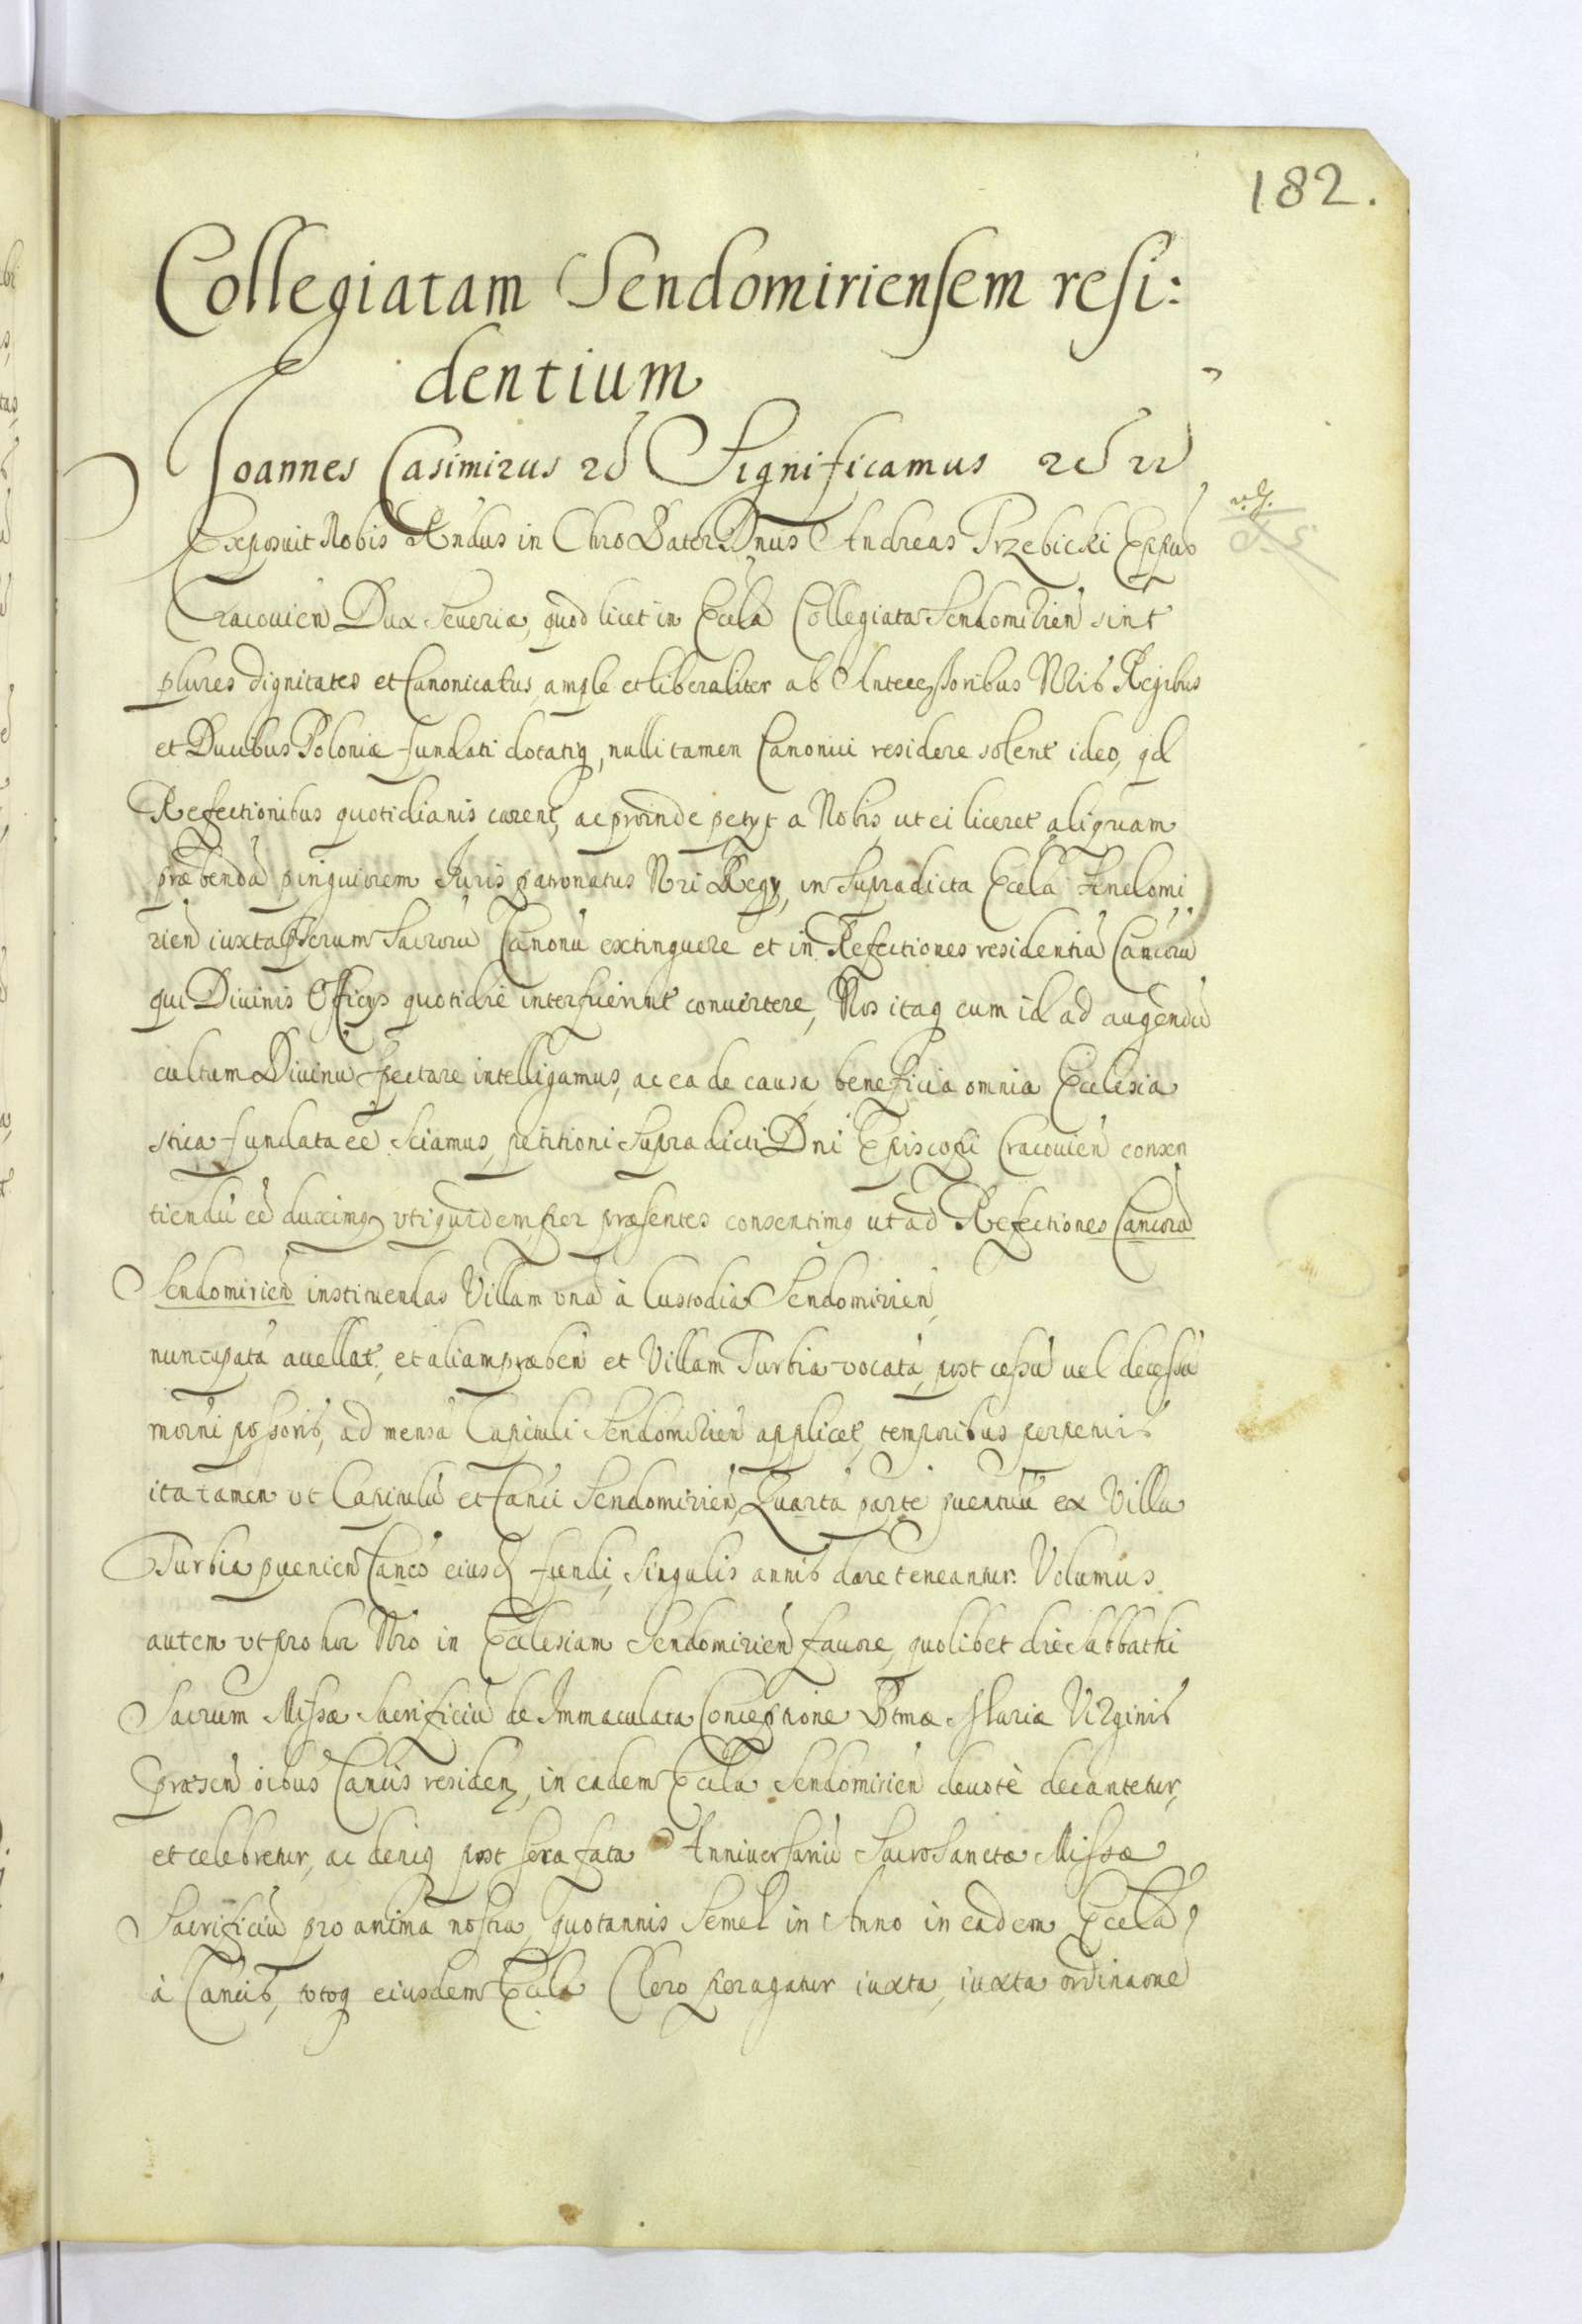 182.
Collegiatam Sendomiriensem resi:
dentium
Joannes Casimirus Significamus
Exposuit Nobis Rndus in Chro Pater Dnus Andreas Trzebicki Eppus
Cracouien Dux Seueriæ, quod licet in Eccla Collegiata Sendomirien sint
plures dignitates et Canonicatus, ample et liberaliter ab Antecessoribus Nris Regibus
et Ducibus Poloniæ fundati dotatiq, nulli tamen Canonici residere solent ideo, qd
Refectionibus quotidianis carent, ac proinde petyt a Nobis, ut ei liceret aliquam
præbendã pinguiorem Juris patronatus Nri Regy, in supradicta Eccla Sendomi
rien iuxta Sacrorũ Canonũ extinguere et in Refectiones residentiũ Cancorũ
qui Diuinis Officys quotidie interfuerint conuertere, Nos itaq cum id ad augendũ
cultum Diuinũ spectare intelligamus, ac ea de causa beneficia omnia Ecclesia
stica fundata eẽ sciamus, petitioni supradicti Dni Episcopi Cracouien consen
tiendũ eẽ duximq, vti quidem per præsentes consentimq ut ad Refectiones Cancorũ
Sendomirien instituendas Villam vnã à Custodia Sendomirien,
nuncupatã auellat, et aliam præben et Villam Turbia vocatã, post cessũ uel decessũ
moɾni possoris, ad mensã Capituli Sendomirien applicet, temporibus perpetuis
ita tamen vt Capitulũ et Canci Sendomirien, Quartã parte puentuũ ex Villa
Turbia puenien Canco eiusd fundi, singulis annis dare teneantur. Volumus
autem vt pro hoc Nro in Ecclesiam Sendomirien fauore, quolibet die Sabbathi
Sacrum Missæ Sacrificiũ de Immaculata Conceptione Btmæ Mariæ Virginis
præsen oibus Cancis residen, in eadem Eccla Sendomirien deuotè decantetur,
et celebretur, ac deniq post sera fata Anniuersariũ Sacrosanctæ Missæ
Sacrificiũ pro anima nostra, quotannis Semel in Anno in eadem Eccla,
à Cancis, totoq eiusdem Eccla Clero peragatur iuxta, iuxta ordinaone